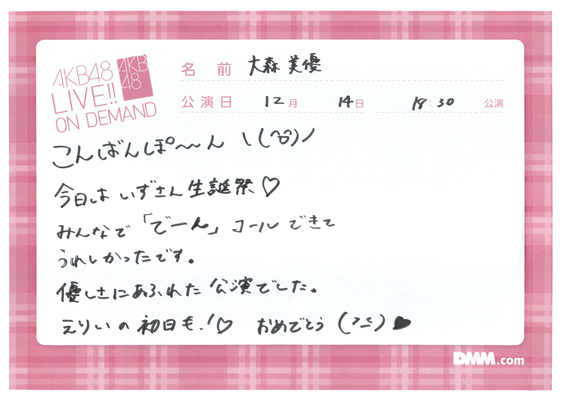 AKB48
LIVE!!
ON DEMAND
AKB
48
名前 大森美優
公演日 12月 14日 18:30 公演
こんばんぽ〜〜ん \(^^)ノ
今日は いずさん 生誕祭♡
みんなで 「でーん」コール できて
うれしかったです。
優しさにあふれた 公演でした。
えりいの 初日も.!♡ おめでとう
DMM.com